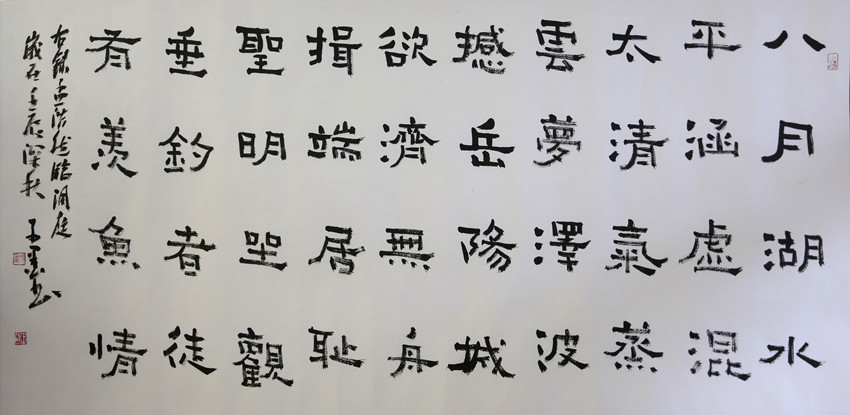 八月湖水
平涵虛混
太清氣蒸
雲夢澤波
撼岳陽城
欲濟無舟
揖端居恥
聖明坐觀
垂釣者徒
有羨魚情
右錄孟浩然臨洞庭
歲在壬辰深秋